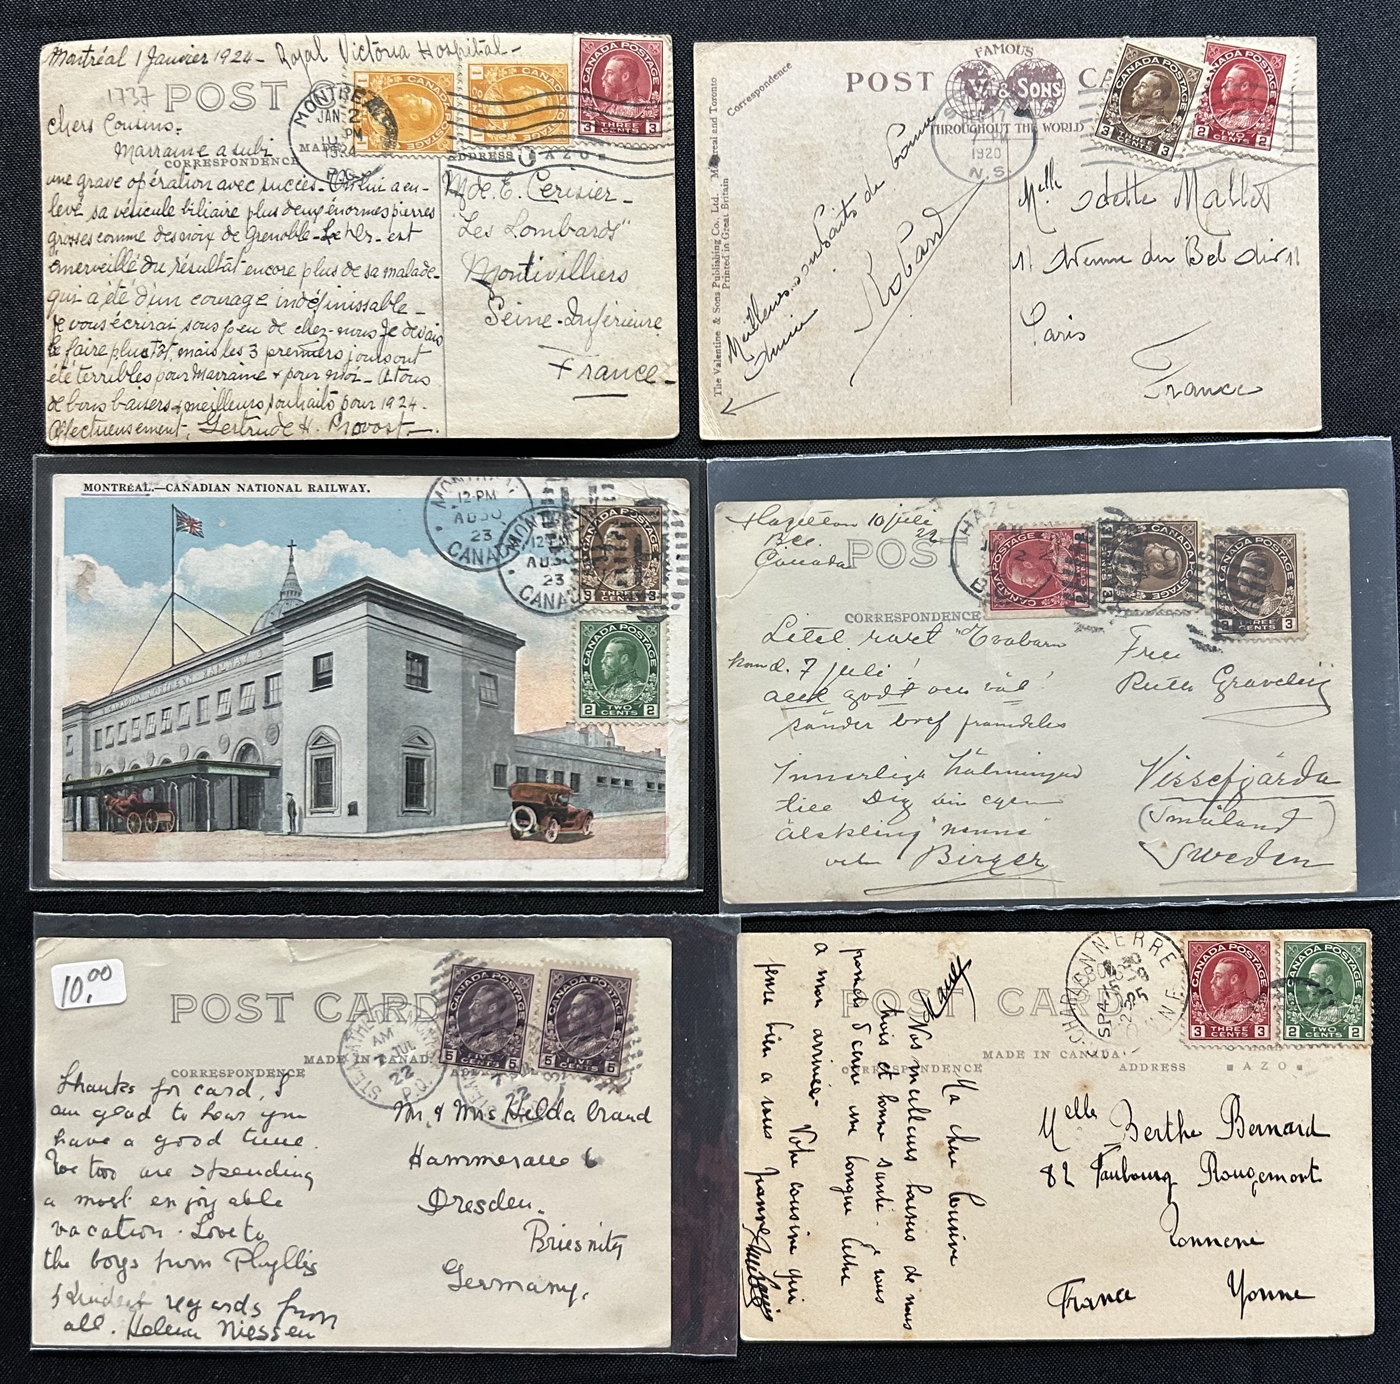 Montréal 1 Janvier 1924 - Royal Victoria Hospital -
1737
POST
Chers Cousins -
Marraine a subi
CORRESPONDENCE
MADE
ADDRESS
AZO
une grave opération avec succès - On lui a en-
levé sa vésicule biliaire plus deux énormes pierres
grosses comme des noix de Grenoble - Le Dr. est
émerveillé du résultat encore plus de sa malade -
qui a été d'un courage indéfinissable -
Je vous écrirai sous peu de chez-nous Je devais
le faire plus tôt, mais les 3 premiers jours ont
été terribles pour Marraine & pour moi - A tous
de bons baisers & meilleurs souhaits pour 1924 -
Affectueusement, Gertrude H. Provost -
Mde. E. Cerisier -
"Les Lombards"
Montivilliers
Seine-Inférieure
France -
MONTREAL
JAN 2
PM
1924
P.Q.
CANADA POSTAGE
1 1
CANADA POSTAGE
1 1
CANADA POSTAGE
3 THREE CENTS 3
FAMOUS
POST CA
V. & SONS
THROUGHOUT THE WORLD
Correspondence
The Valentine & Sons Publishing Co., Ltd. Montreal and Toronto
Printed in Great Britain
17
1920
N.S.
CANADA POSTAGE
3 THREE CENTS 3
CANADA POSTAGE
2 TWO CENTS 2
Meilleurs souhaits de bonne
Robard
Melle Odette Mallet
11 Avenue du Bel Air 11
Paris
France
MONTREAL.—CANADIAN NATIONAL RAILWAY.
MONTREAL
12-PM
AU 30
23
CANADA
MONTREAL
12-PM
AU 30
23
CANADA
CANADA POSTAGE
3 THREE CENTS 3
CANADA POSTAGE
2 TWO CENTS 2
Hazelton 10 juli
B.C. 22
Canada
POST
CORRESPONDENCE
HAZ
CANADA POSTAGE
2 TWO CENTS 2
CANADA POSTAGE
3 THREE CENTS 3
CANADA POSTAGE
3 THREE CENTS 3
kom d. 7 juli!
allt godt och väl!
sänder bref framdeles
Innerliga hälsningar
till Dig din egen
älskling
Birger
Ruth Graveling
Vissefjärda
(Småland)
Sweden
10.00
POST CARD
MADE IN CANADA
CORRESPONDENCE
STE. AGATHE DES MONTS
AM
JUL
22
P.Q.
CANADA POSTAGE
5 FIVE CENTS 5
CANADA POSTAGE
5 FIVE CENTS 5
Thanks for card, I
am glad to hear you
have a good time.
We two are spending
a most enjoyable
vacation. Love to
the boys from Phyllis
Kindest regards from
all. Helena Niessen
Mr. & Mrs Hildabrand
Hammeraue 6
Dresden.
Briesnitz
Germany.
POST CARD
MADE IN CANADA
CORRESPONDENCE
ADDRESS
AZO
CHARBONNERRE
SP 4
25
CANADA POSTAGE
3 THREE CENTS 3
CANADA POSTAGE
2 TWO CENTS 2
Ma chère cousine
Nos meilleurs baisers de nous
trois et bonne santé. Je vous
promets d'écrire une longue lettre
a mon arrivée. Votre cousine qui
pense bien a vous
Melle Berthe Bernard
82 Faubourg Rougemont
Tonnerre
France Yonne